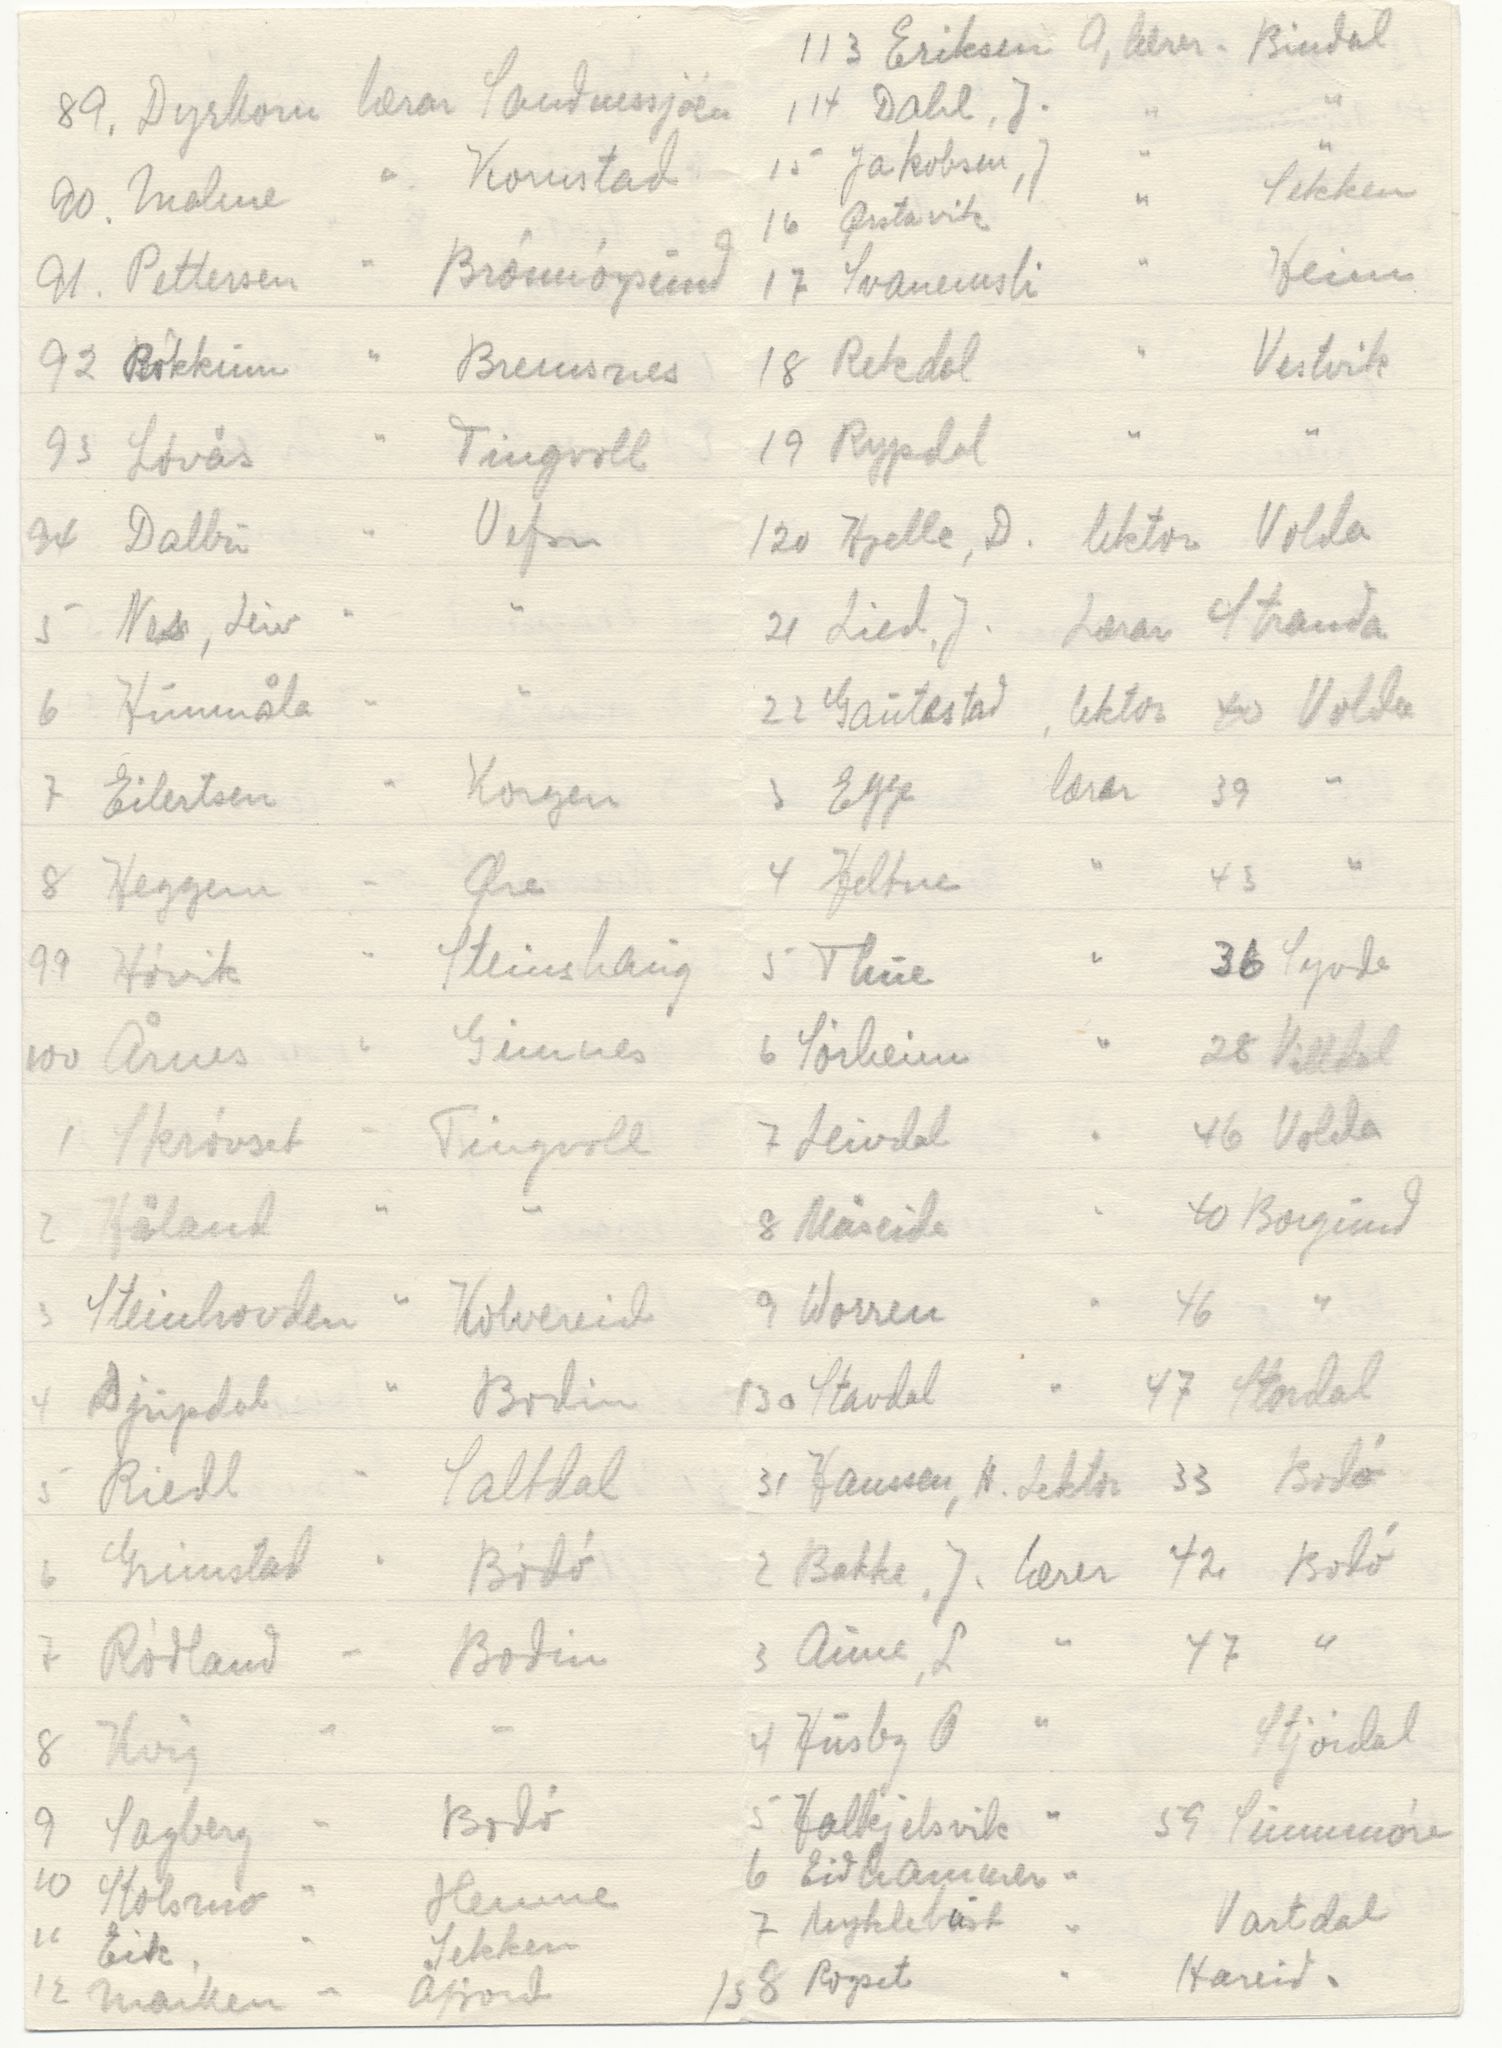 89. Dyrkorn lærar Sandnessjöen
90. Malme " Kornstad
91. Pettersen " Brönnöysund
92 Rökkum " Bremsnes
93 Lövås " Tingvoll
94 Dalbu " Vefsn
5 Nes, Leiv " "
6 Hummåla " "
7 Eilertsen " Korgen
8 Heggem " Øre
99 Hövik " Steinshaug
100 Årnes " Gimnes
1 Skrövset " Tingvoll
2 Håland " "
3 Steinhovden " Kolvereid
4 Djupdal " Bodin
5 Riedl " Saltdal
6 Grimstad " Bodö
7 Rödland " Bodin
8 Kvig " "
9 Sagberg " Bodö
10 Stolsmo " Hemne
11 Eik, " Sekken
12 Marken " Åfjord
113 Eriksen A, lærer - Bindal
114 Dahl, J. " "
15 Jakobsen, J " "
16 Ørstavik " Sekken
17 Svanemsli " Heim
18 Rekdal " Vestvik
19 Rypdal " "
120 Hjelle, D. lektor Volda
21 Lied, J. Lærar Stranda
22 Gautestad, lektor 40 Volda
3 Egge lærar 39 "
4 Heltne " 43 "
5 Thue " 36 Syvde
6 Sörheim " 28 Valldal
7 Leivdal " 46 Volda
8 Måseide " 40 Borgund
9 Worren " 46 "
130 Stavdal " 47 Stordal
31 Hanssen, H. Lektor 33 Bodö
2 Bakke, J. lærer 42 Bodö
3 Aune, L " 47 "
4 Husby P " Stjördal
5 Halkjelsvik " 59 Sunnmöre
6 Eidhammer "
7 Myklebust " Vartdal
138 Rogset " Hareid.